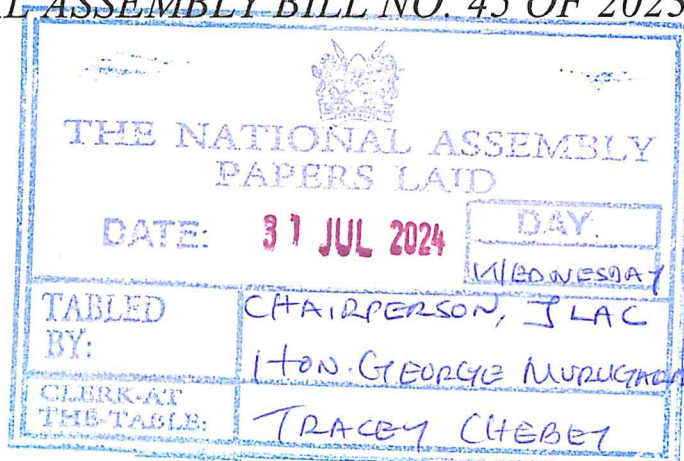 L ASSEMBLY BILL NO. 45 OF 2023
THE NATIONAL ASSEMBLY
PAPERS LAID
DATE: 31 JUL 2024
DAY.
WEDNESDAY
TABLED BY:
CHAIRPERSON, JLAC
HON. GEORGE
CLERK-AT THE-TABLE:
TRACEY CHEBET